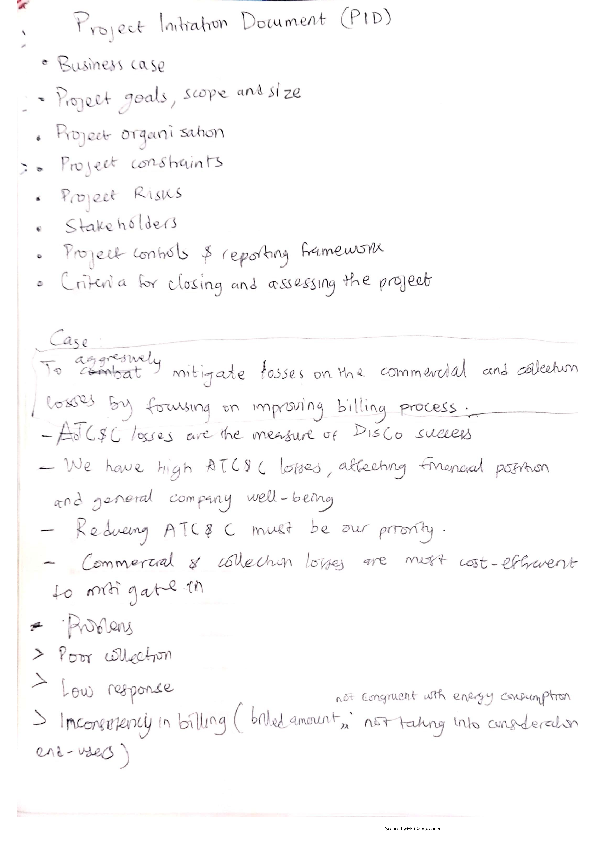 Project Initiation Document (PID)
• Business case
• Project goals, scope and size
• Project organisation
• Project constraints
• Project Risks
• Stakeholders
• Project controls & reporting framework
• Criteria for closing and assessing the project
Case
aggresively
To combat mitigate losses on the commercial and collection
losses by focusing on improving billing process.
- ATC&C losses are the measure of DisCo success
- We have high ATC&C losses, affecting financial position
and general company well-being
- Reducing ATC&C must be our priority.
- Commercial & collection losses are most cost-efficient
to mitigate in
- Problems
> Poor collection
> Low response
not congruent with energy consumption
> Inconsistency in billing ( billed amount, not taking into consideration
end-users)